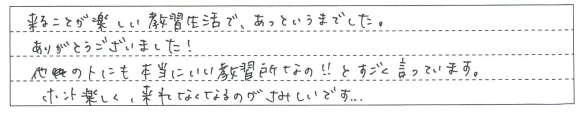 来ることが楽しい教習生活で、あっというまでした。
ありがとうございました!
他校の人にも本当にいい教習所なの!!とすごく言っています。
ホント楽しく、来れなくなるのがさみしいです...